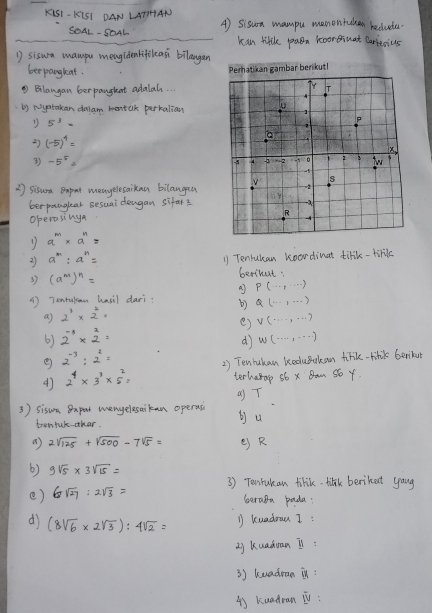 KISI - KISI DAN LATIHAN
SOAL - SOAL
1) siswa mampu mengidentifikasi bilangan
berpangkat.
a) Bilangan berpangkat adalah ...
b) Nyatakan dalam bentuk perkalian
1) 5³ =
2) (-5)⁴ =
3) -5⁵ =
2) Siswa dapat menyelesaikan bilangan
berpangkat sesuai dengan sifat2
operasinya
1) aᵐ × aⁿ =
2) aᵐ : aⁿ =
3) (aᵐ)ⁿ =
4) Tentukan hasil dari :
a) 2³ × 2² =
b) 2⁻³ × 2² =
c) 2⁻³ : 2² =
d) 2⁴ × 3³ × 5² =
3) Siswa dapat menyelesaikan operasi
bentuk akar.
a) 2√125 + √500 - 7√5 =
b) 9√5 × 3√15 =
c) 6√27 : 2√3 =
d) (8√6 × 2√3) : 4√2 =
4) Siswa mampu menentukan kedudu-
kan titik pada koordinat Cartesius
Perhatikan gambar berikut!
Y
T
U
P
Q
X
W
V
S
R
1) Tentukan koordinat titik - titik
berikut :
a) P (..., ...)
b) Q (..., ...)
c) V (..., ...)
d) W (..., ...)
2) Tentukan kedudukan titik - titik berikut
terhadap sb x dan sb y.
a) T
b) U
c) R
3) Tentukan titik - titik berikut yang
berada pada :
1) Kuadran I :
2) Kuadran II :
3) Kuadran III :
4) Kuadran IV :